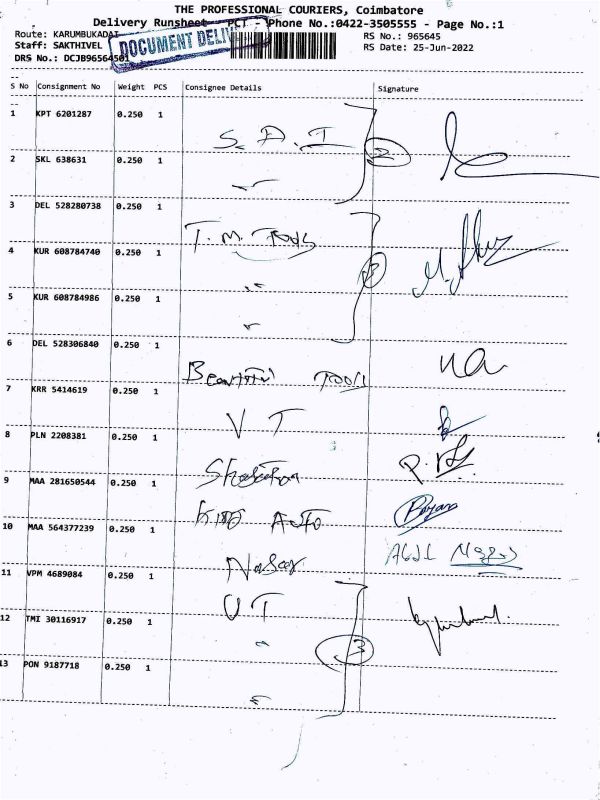 THE PROFESSIONAL COURIERS, Coimbatore
Delivery Runsheet - PCT - Phone No.:0422-3505555 - Page No.:1
Route: KARUMBUKADAI RS No.: 965645
Staff: SAKTHIVEL RS Date: 25-Jun-2022
DRS No.: DCJB96564501
DOCUMENT DELIV
S No Consignment No Weight PCS Consignee Details Signature
1 KPT 6201287 0.250 1
S. A. I 2
2 SKL 638631 0.250 1
3 DEL 528280738 0.250 1
T. M. Tools
4 KUR 608784740 0.250 1
3
5 KUR 608784986 0.250 1
6 DEL 528306840 0.250 1
Beautiful Tools
7 KRR 5414619 0.250 1
V T
8 PLN 2208381 0.250 1
9 MAA 281650544 0.250 1
King Auto
10 MAA 564377239 0.250 1
Naser
11 VPM 4689084 0.250 1
U T
12 TMI 30116917 0.250 1
3
13 PON 9187718 0.250 1